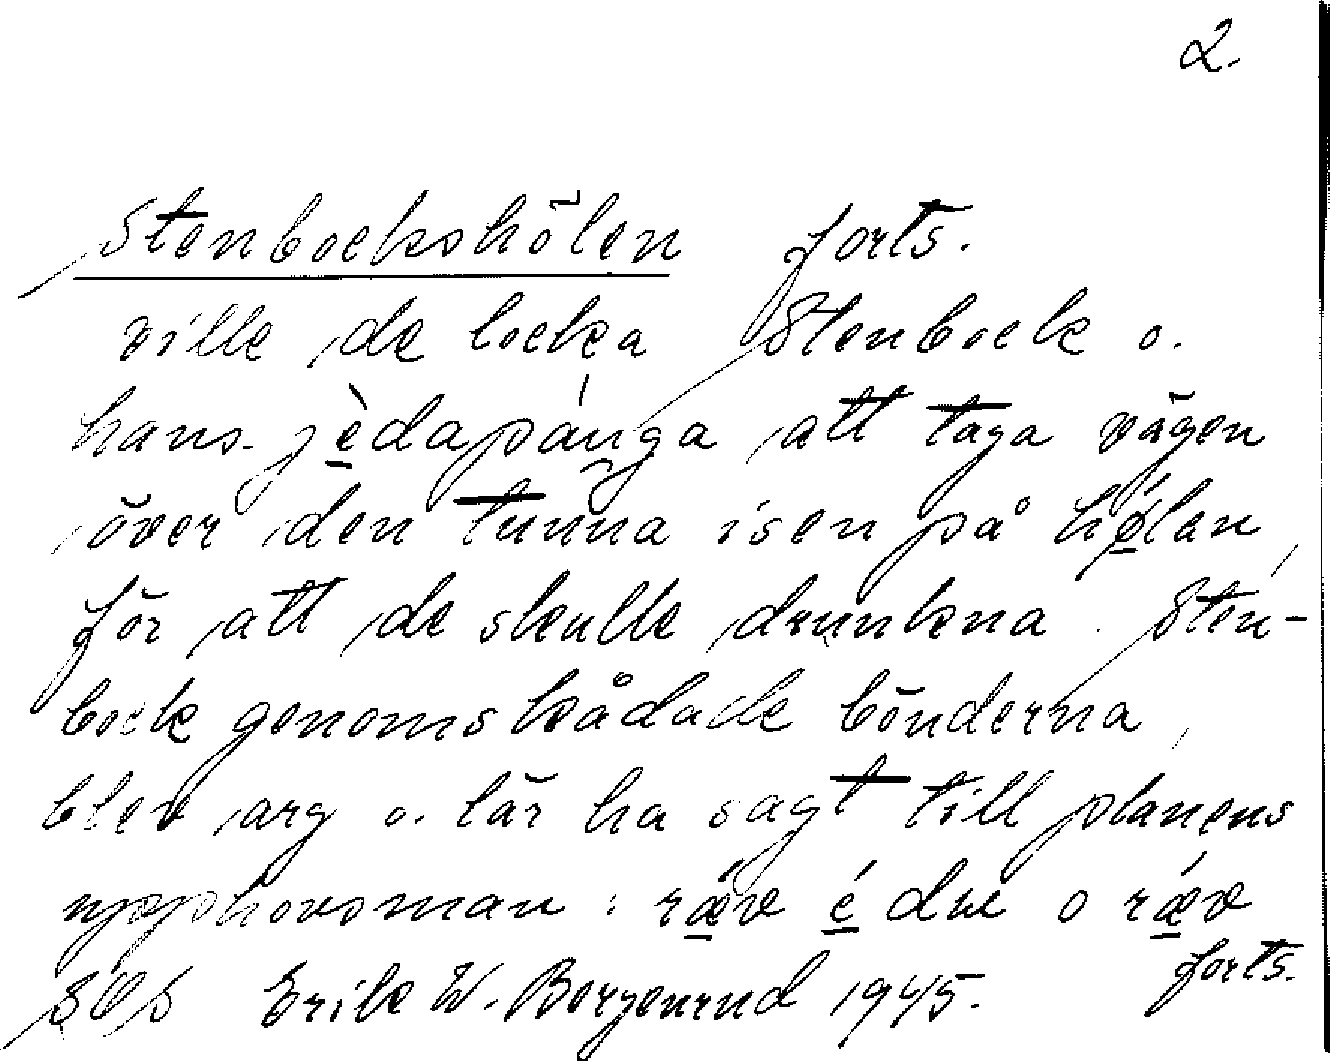 2.
Stenbockshölen forts.
ville de locka Stenbock o.
hans jèdapánga att taga vägen
över den tunna isen på hǿlen,
för att de skulle drunkna. Sten-
bock genomskådade bönderna,
blev arg o. lär ha sagt till planens
upphovsman: rǽv é du o rǽv
forts.
Erik W. Bergenrud 1945.